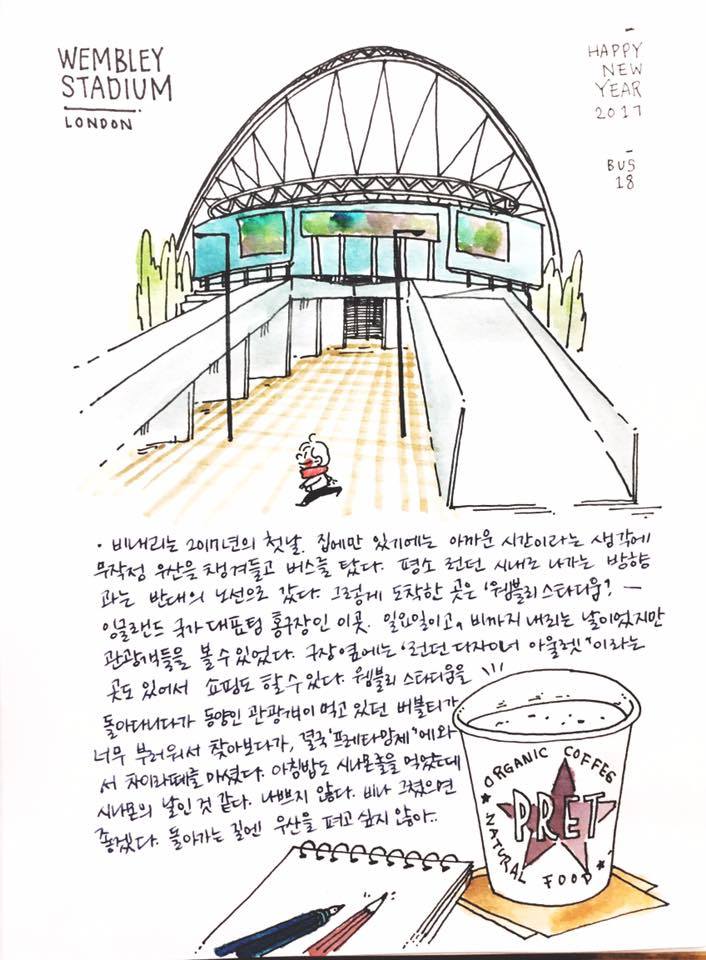 WEMBLEY
STADIUM
LONDON
HAPPY
NEW
YEAR
2017
BUS
18
· 비내리는 2017년의 첫날. 집에만 있기에는 아까운 시간이라는 생각에
무작정 우산을 챙겨들고 버스를 탔다. 평소 런던 시내로 나가는 방향
과는 반대의 노선으로 갔다. 그렇게 도착한 곳은 '웸블리 스타디움'. —
잉글랜드 국가대표팀 홈구장인 이곳. 일요일이고, 비까지 내리는 날이었지만
관광객들을 볼 수 있었다. 구장 옆에는 '런던 디자이너 아울렛' 이라는
곳도 있어서 쇼핑도 할 수 있다. 웸블리 스타디움을
돌아다니다가 동양인 관광객이 먹고 있던 버블티가
너무 부러워서 찾아보다가, 결국 '프레타망제'에 와
서 차이라떼를 마셨다. 아침밥도 시나몬롤을 먹었는데
시나몬의 날인 것 같다. 나쁘지 않다. 비나 그쳤으면
좋겠다. 돌아가는 길엔 우산을 펴고 싶지 않아..
ORGANIC COFFEE
PRET
NATURAL FOOD